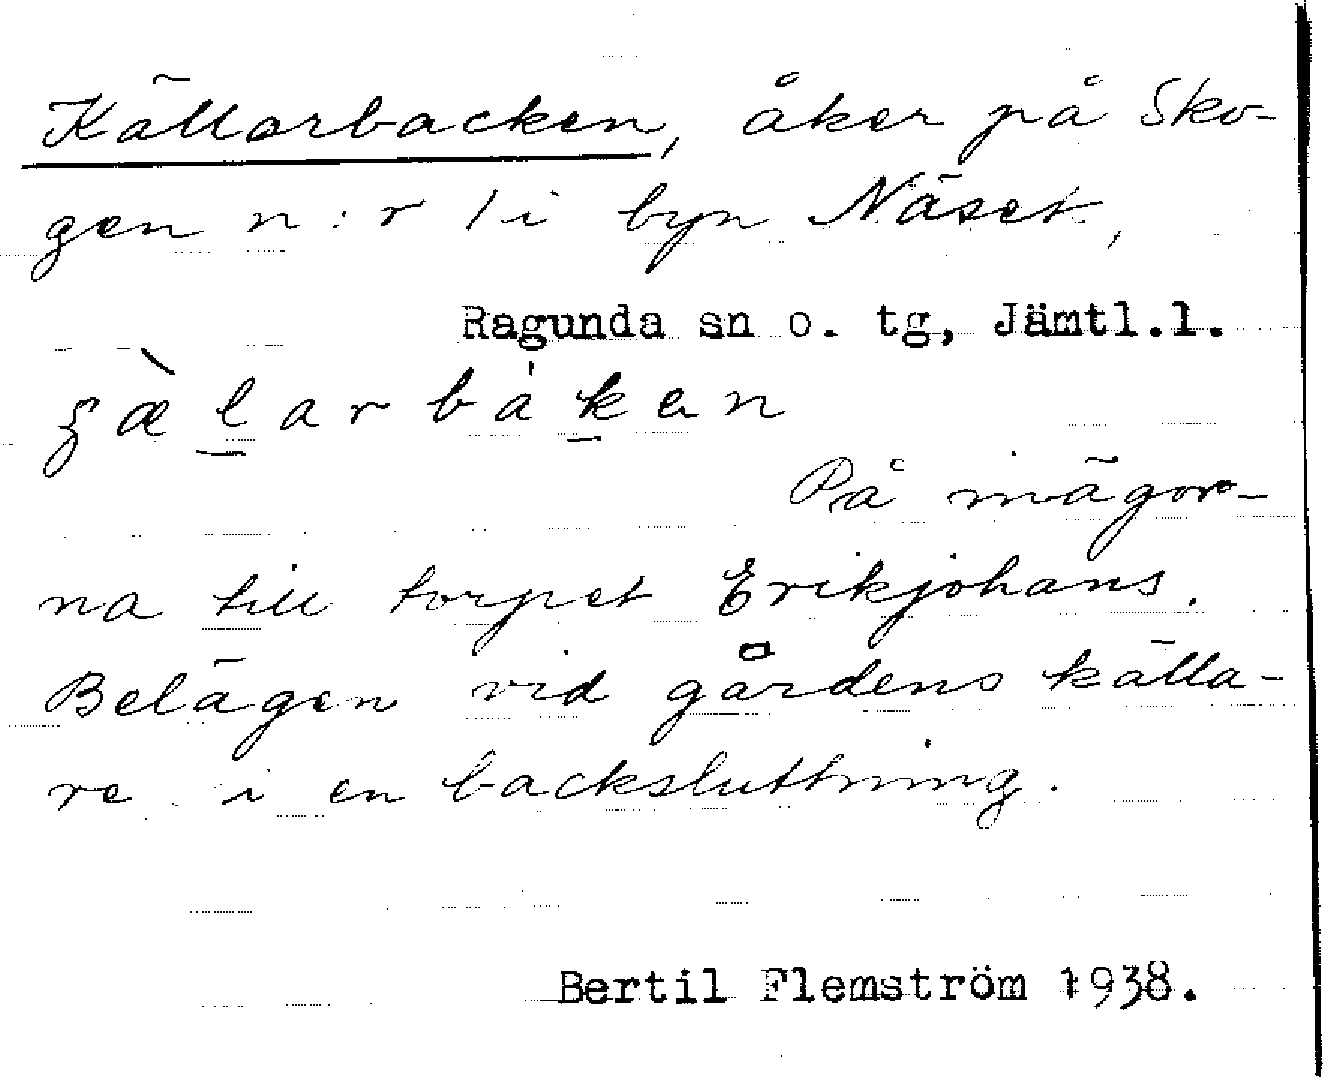 Källarbacken, åker på Sko-
gen n:r 1 i byn Näset,
Ragunda sn o. tg, Jämtl.l.
ʂæ̀larbáken
På inägor-
na till torpet Erikjohans.
Belägen vid gårdens källa-
re i en backsluttning.
Bertil Flemström 1938.